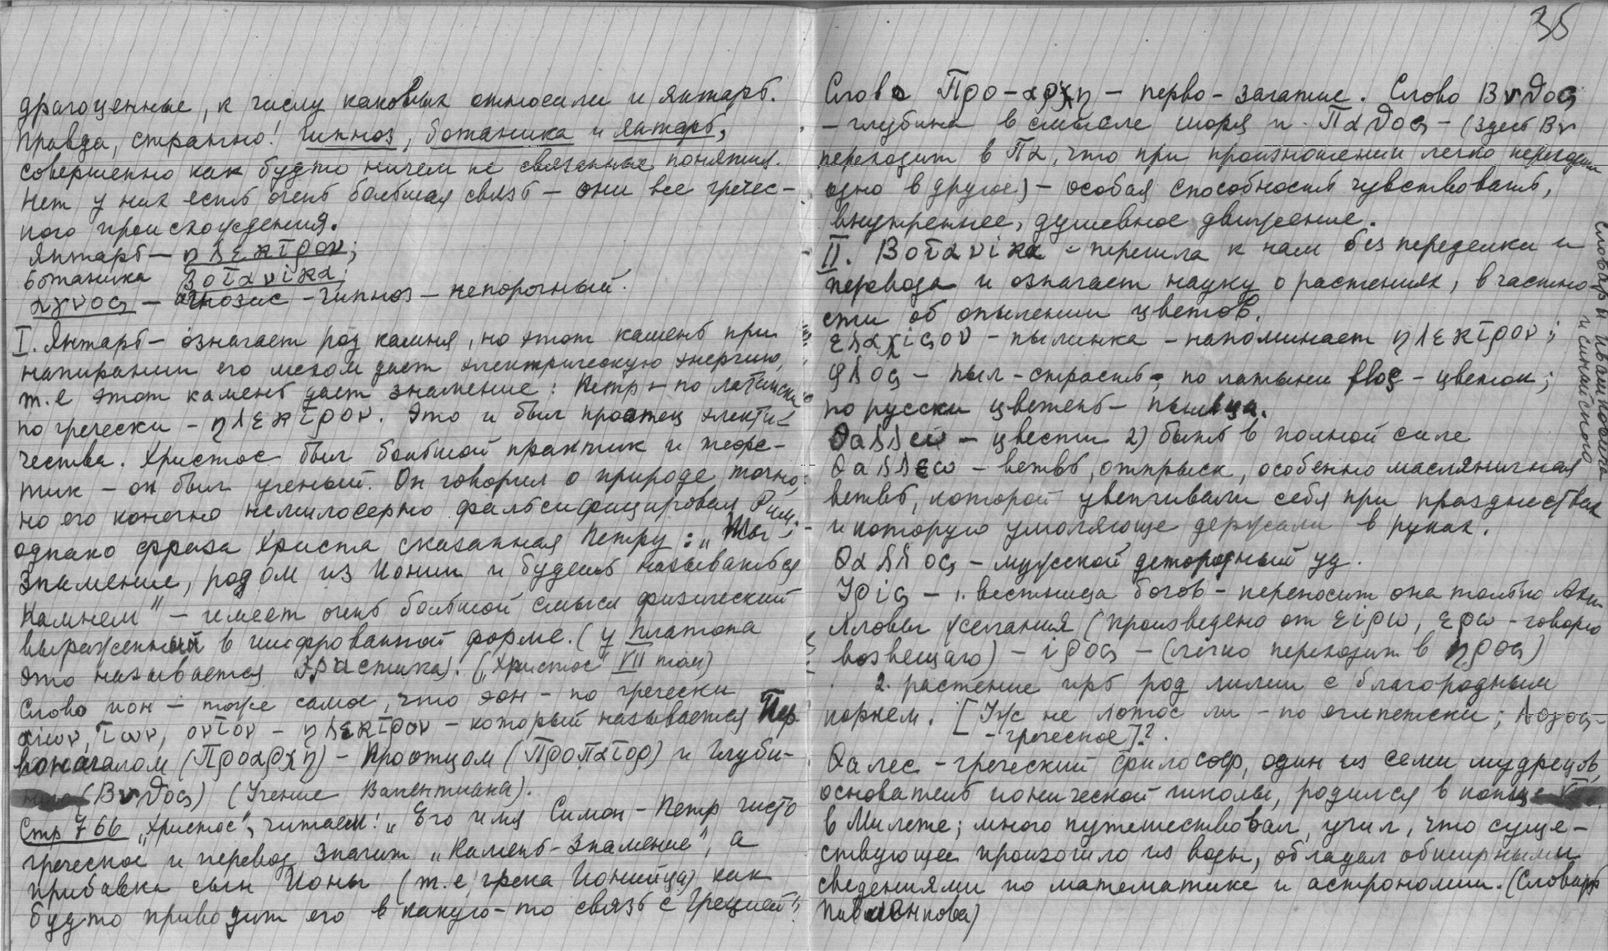 драгоценные, к числу каковых относили и янтарь.
Правда, странно! Гипноз, ботаника и янтарь,
совершенно как будто ничем не связанные понятия.
Нет у них есть очень большая связь — они все гречес-
кого происхождения.
Янтарь — ηλεκτρον;
ботаника βοτανικα;
αγνος — агнозис — гипноз — непорочный.
I. Янтарь — означает род камня, но этот камень при
натирании его мехом дает электрическую энергию,
т.е этот камень дает знамение: Петр — по латински
по гречески — ηλεκτρον. Это и был праотец электри-
чества. Христос был большой практик и теоре-
тик — он был ученый. Он говорил о природе точно,
но его конечно немилосердно фальсифицировал Рим;
однако фраза Христа сказанная Петру: „Ты —
Знамение, родом из Ионии и будешь называться
Камнем" — имеет очень большой смысл физический
выраженный в шифрованной форме. (у Платона
это называется Храстика). („Христос" VII том)
Слово ион — тоже самое, что эон — по гречески
αιων, ιων, οντον — ηλεκτρον — который называется Пер
воначалом (Προαρχη) — Праотцом (Προπατορ) и Глуби-
ною (Βυθος) (Учение Валентиана).
Стр 766 „Христос", читаем: „Его имя Симон-Петр чисто
греческое и перевод значит „Камень-Знамение", а
прибавка сын Ионы (т.е грека Ионийца) как
будто приводит его в какую-то связь с Грецией"!
35
Слово Προ-αρχη — перво-зачатие. Слово Βυθος
— глубина в смысле моря и Παθος — (здесь Βυ
переходит в Πα, что при произношении легко переходит
одно в другое) — особая способность чувствовать,
внутреннее, душевное движение.
II. Βοτανικα — перешла к нам без переделки и
перевода и означает науку о растениях, в частно
сти об опылении цветов.
ελαχιςον — пылинка — напоминает ηλεκτρον;
φλος — пыл-страсть, по латыни flos — цветок;
по русски цветень — пыльца.
θαλλειν — цвести 2) быть в полной силе
θαλλεω — ветвь, отпрыск, особенно масляничная
ветвь, которой увенчивали себя при празднествах
и которую умоляюще держали в руках.
θαλλος — мужской детородный уд.
Ιρις — 1. вестница богов — переносит она только
желания (произведено от ειρω, ερω — говорю
возвещаю) — ιρος — (легко переходит в ηρος)
2. растение ирь род лилии с благородным
корнем. [Уж не лотос ли — по египетски; Λογος —
— греческое]?.
Фалес — греческий философ, один из семи мудрецов,
основатель ионической школы, родился в конце VII
в Милете; много путешествовал, учил, что суще-
ствующее произошло из воды, обладал обширными
сведениями по математике и астрономии. (Словарь
Павленкова)
словарь Ивашковича
и синайского